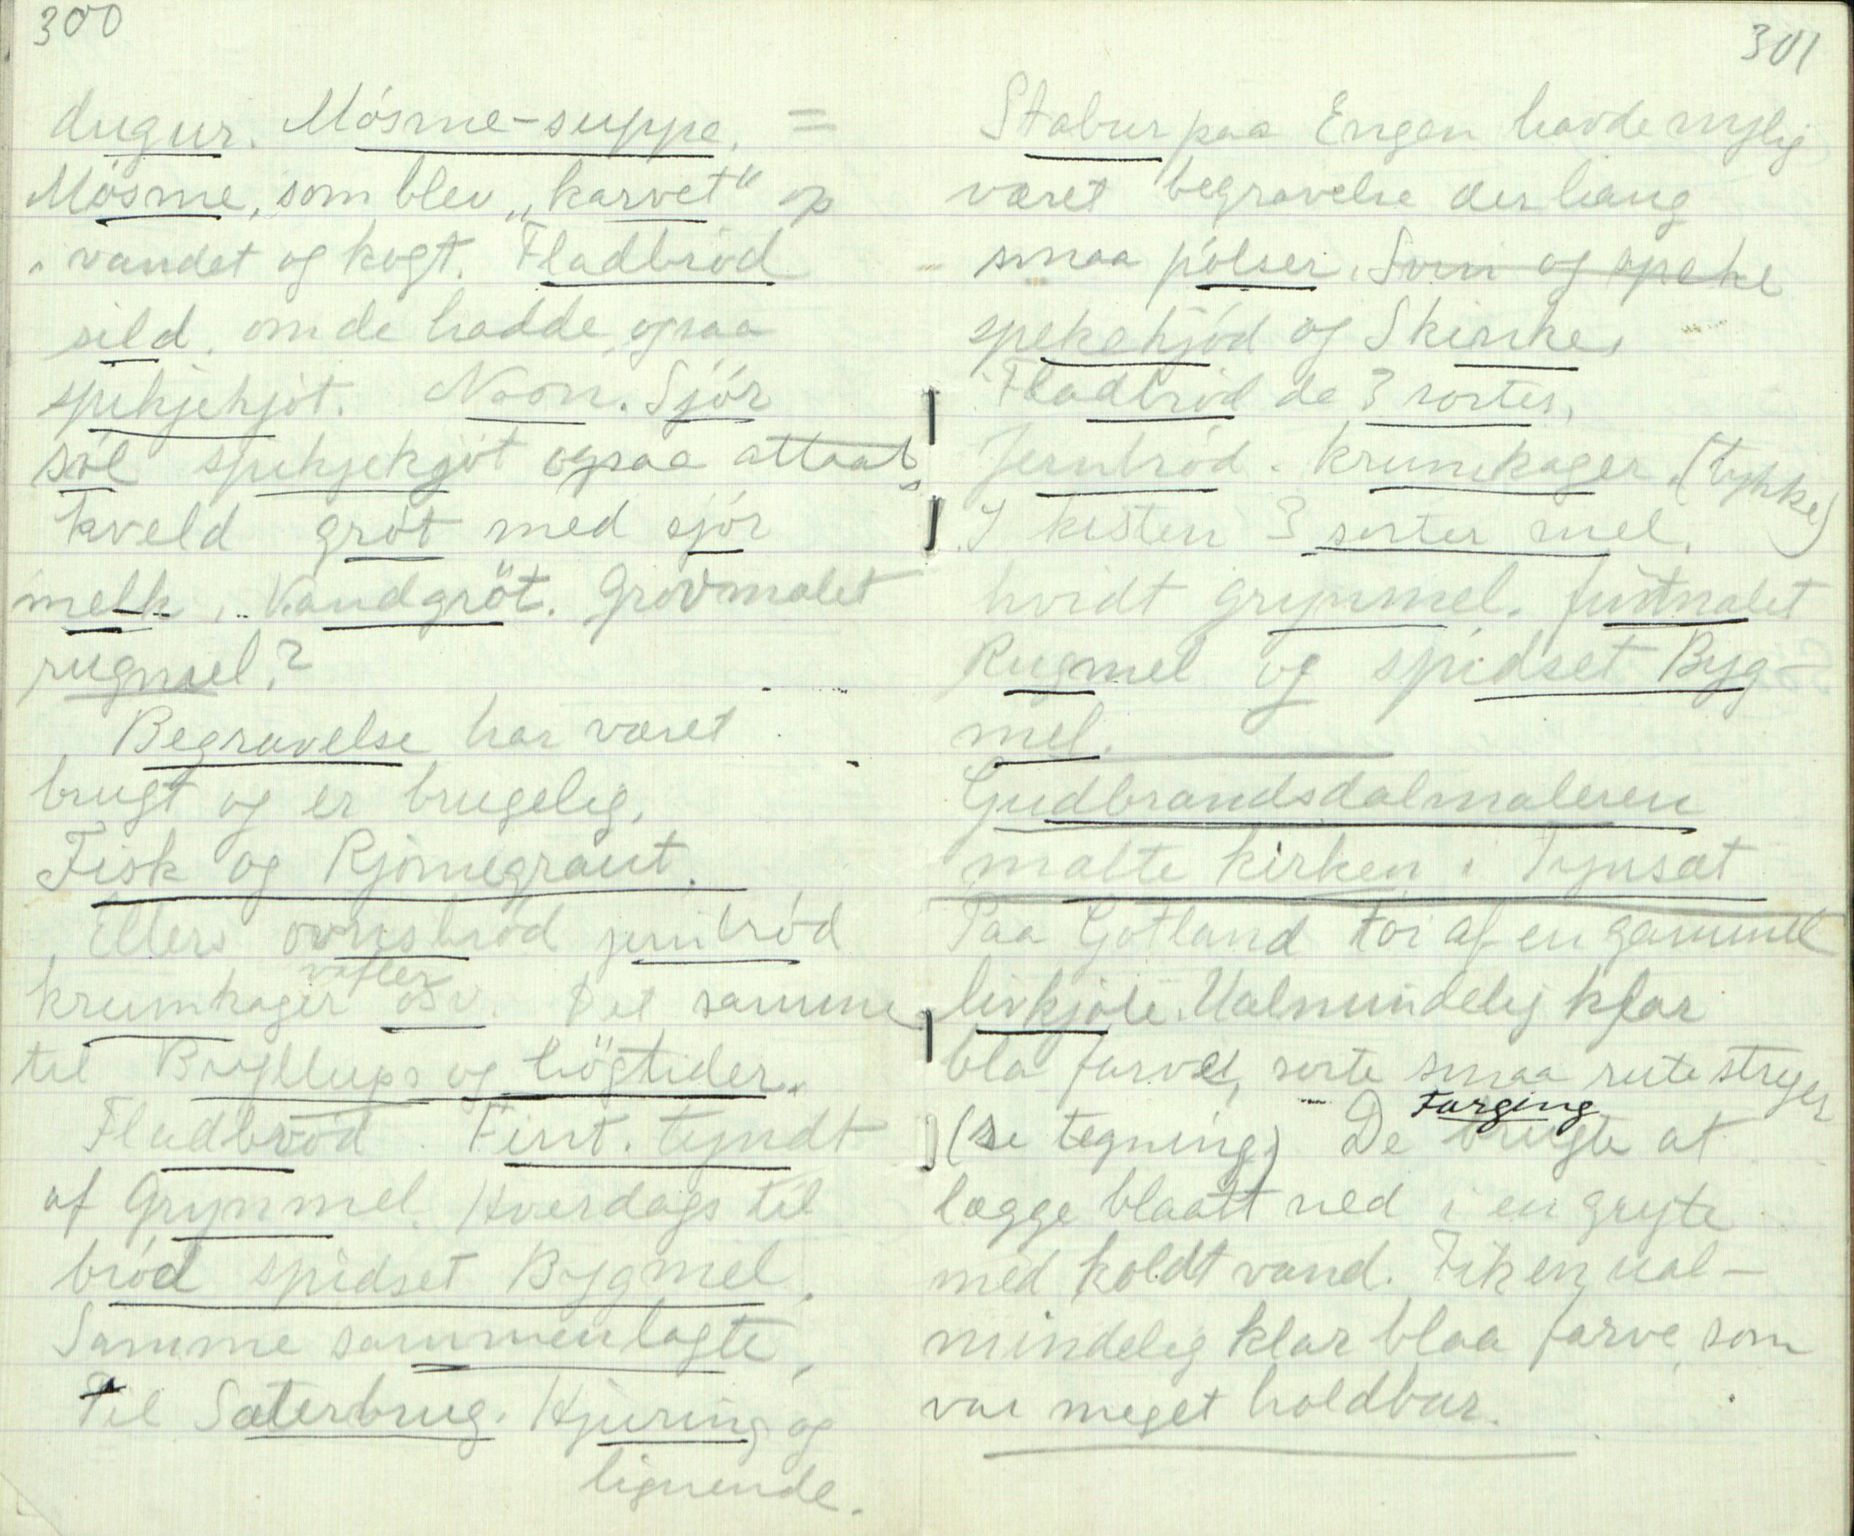 300
dugur. Mósme-suppe. =
Mösme, som blev „karvet" op
i vandet og kogt. Fladbröd
sild, om de hadde, ogsaa
spekjekjöt. Noon. Sjör
söl spekjekjöt ogsaa attaat
Kveld gröt med sjör
melk, Vandgröt. Grovmalet
rugmel?
Begravelse har været
brugt og er brugelig.
Fisk og Rjömegraut.
Ellers ovnsbröd jernbröd
vafler
krumkager osv. Det samme
til Bryllups og högtider.
Fladbröd. Fint. tyndt
af Grynmel. Hverdags til
bröd spidset Bygmel.
Samme sammenlagte,
Til Sæterbrug. Hjuring og
lignende.
301
Stabur paa Engen havde nylig
været begravelse der hang
smaa pölser. Svin og speke
spekekjöd og Skinke,
Fladbröd de 3 sorter,
Jernbröd. Krumkager. (tykke)
I kisten 3 sorter mel.
hvidt grynmel. fintmalet
Rugmel og spidset Byg-
mel.
Gudbrandsdalmaleren
malte kirken i Tynset
Paa Gotland töi af en gammel
livkjole. Ualmindelig klar
blå farvet, sorte smaa rutestreger
Farging
(se tegning) De brugte at
lægge blaatt ned i en gryte
med koldt vand. Fik en ual-
mindelig klar blaa farve, som
var meget holdbar.